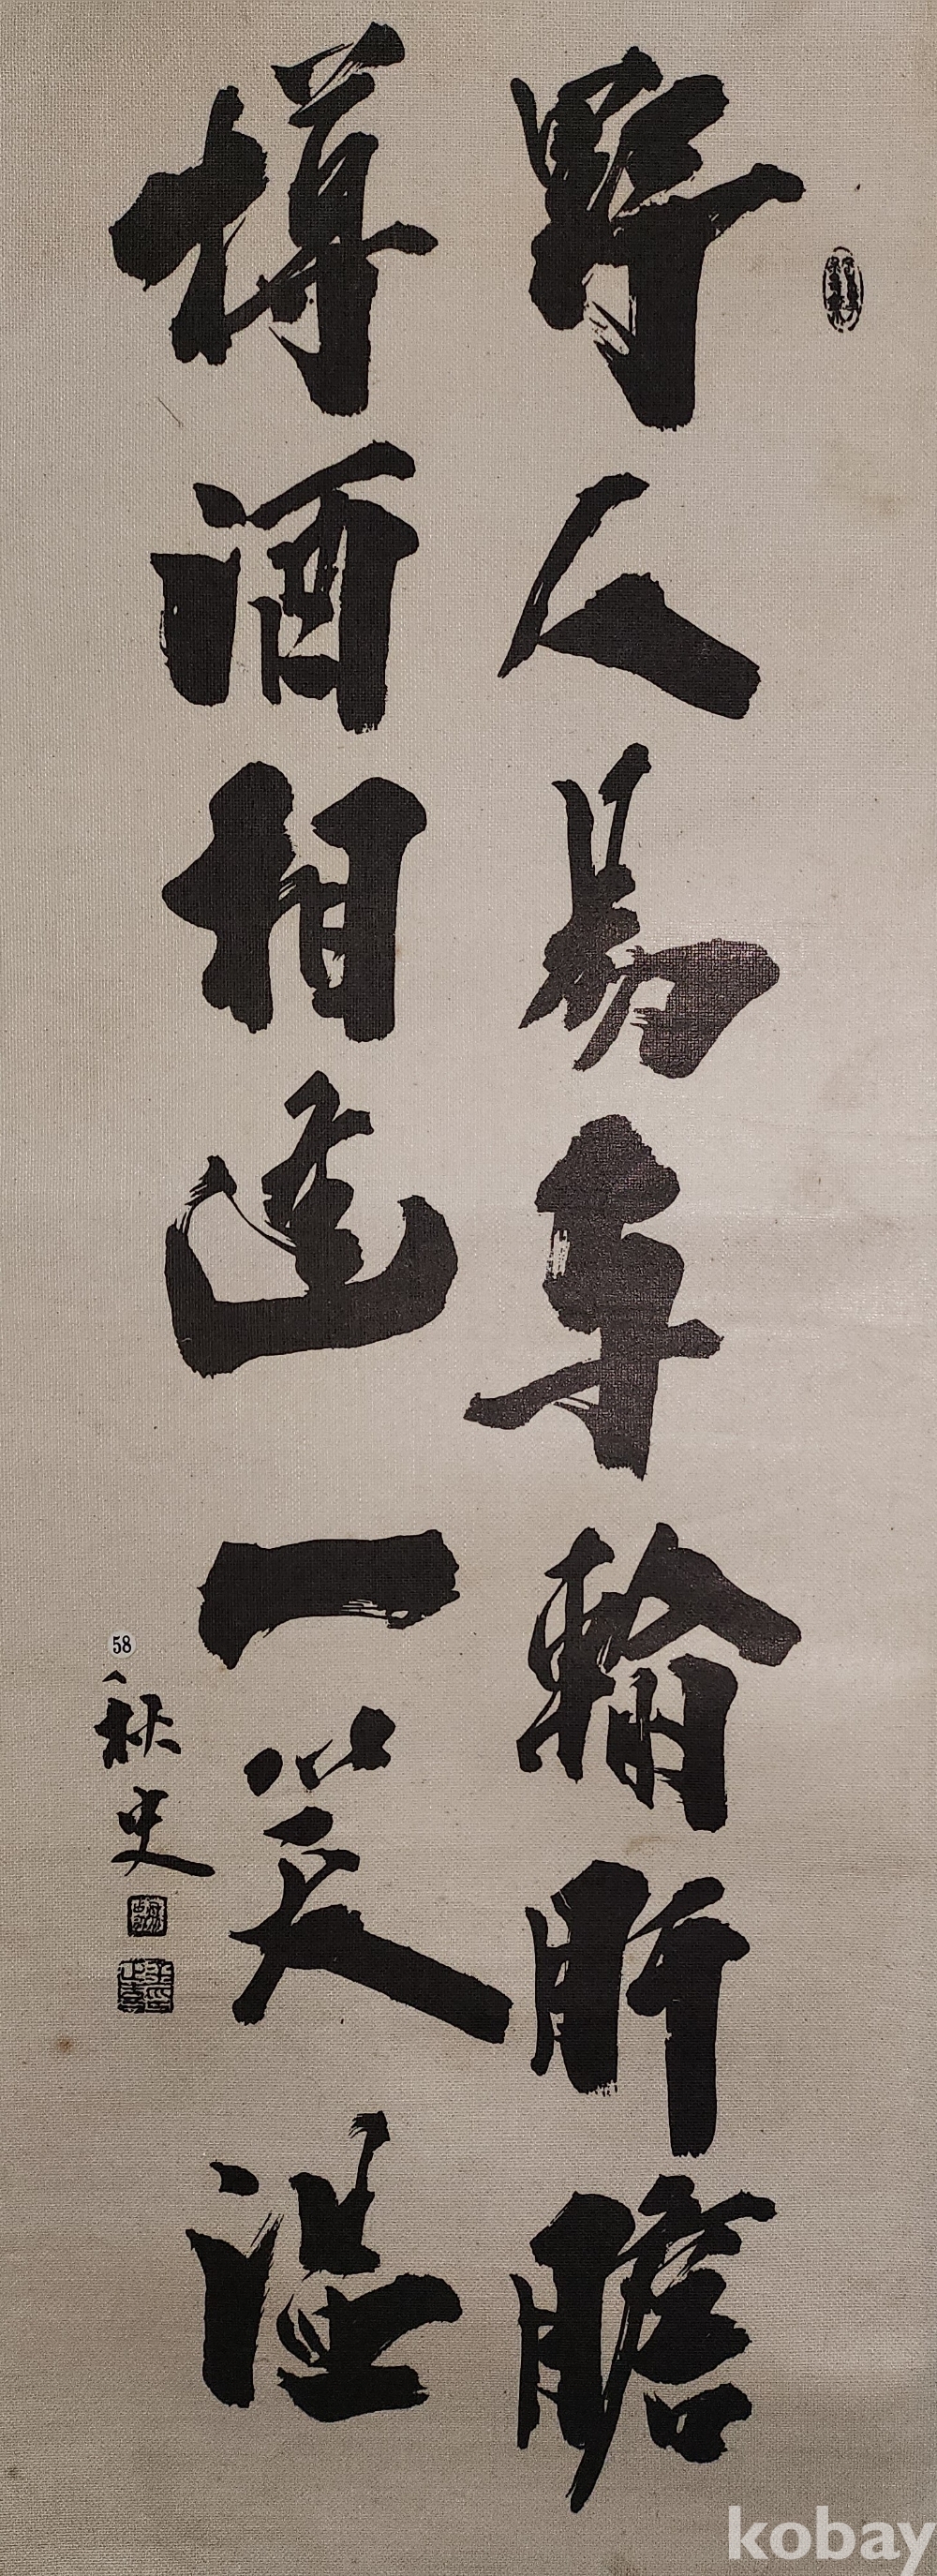 野人易与輸肝膽
樽酒相逢一笑溫
58
秋史
kobay